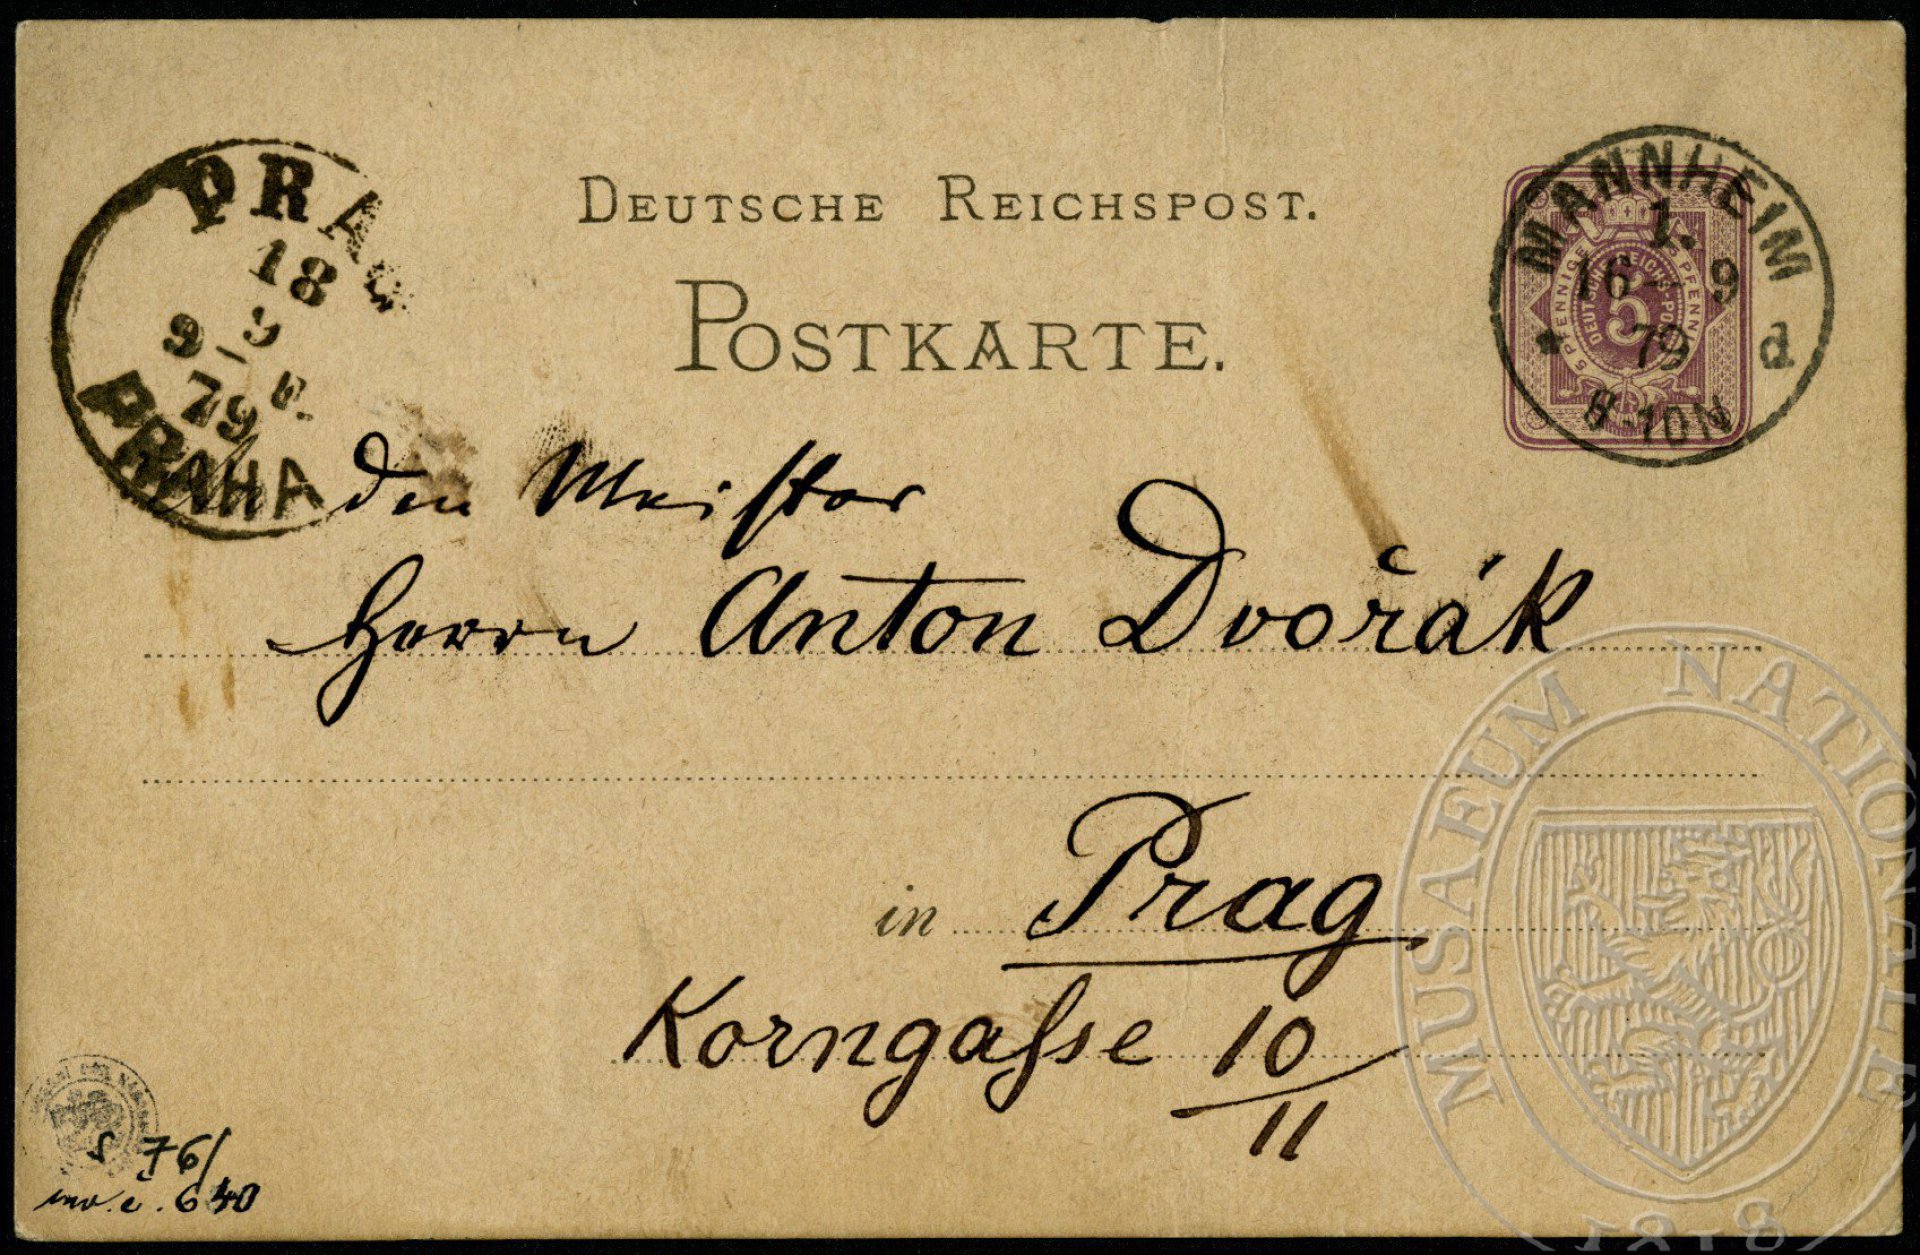 DEUTSCHE REICHSPOST.
POSTKARTE.
PRAG
18
9
79
PRAHA
MANNHEIM
1.
16 9
79
d
8-10N
5 PFENNIGE
DEUTSCHE REICHS-POST
5
An den Meister
Herrn Anton Dvořák
in Prag
Korngasse 10
11
S 76/
inv. č. 640
MUSAEUM NATIONALE
1818